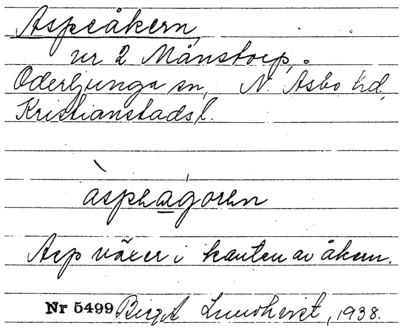 Aspeåkern,
nr 2 Månstorp,
Oderljunga sn, N. Åsbo hd,
Kristianstads l.
àspeàgoren
Asp växer i kanten av åkern.
Nr 5499 Birgit Lundkvist, 1938.